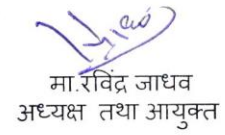 मा.रविंद्र जाधव
अध्यक्ष तथा आयुक्त